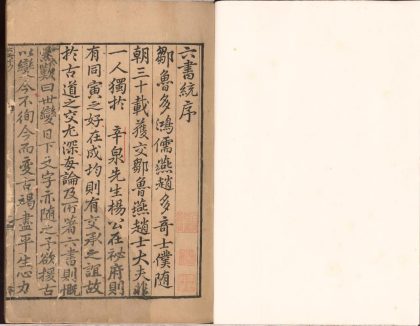 六書統序
鄒魯多鴻儒燕趙多奇士僕隨
朝三十載獲交鄒魯燕趙士大夫非
一人獨於 辛泉先生楊公在祕府則
有同寅之好在成均則有交承之誼故
於古道之交尤深每論及所著六書則慨
然嘆曰世變日下文字亦隨之予欲援古
以變今不徇今而愛古竭盡平生心力